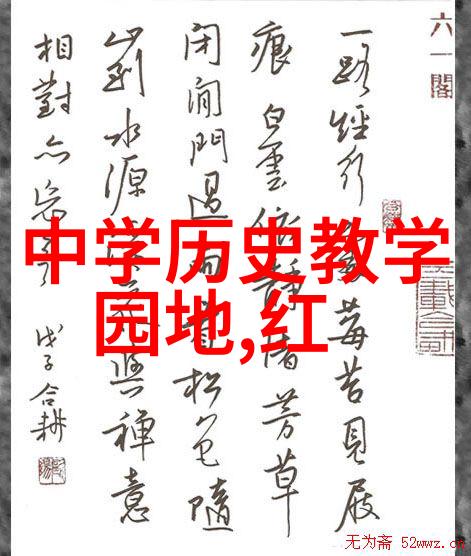 中学历史教学
园地,红
六一閣
一路經行處莓苔見屐
痕白雲依靜渚芳草
閉閒門過雨看松色隨
山到水源溪花與禪意
相對亦忘言 戊子合耕
无为斋 52wwz.c